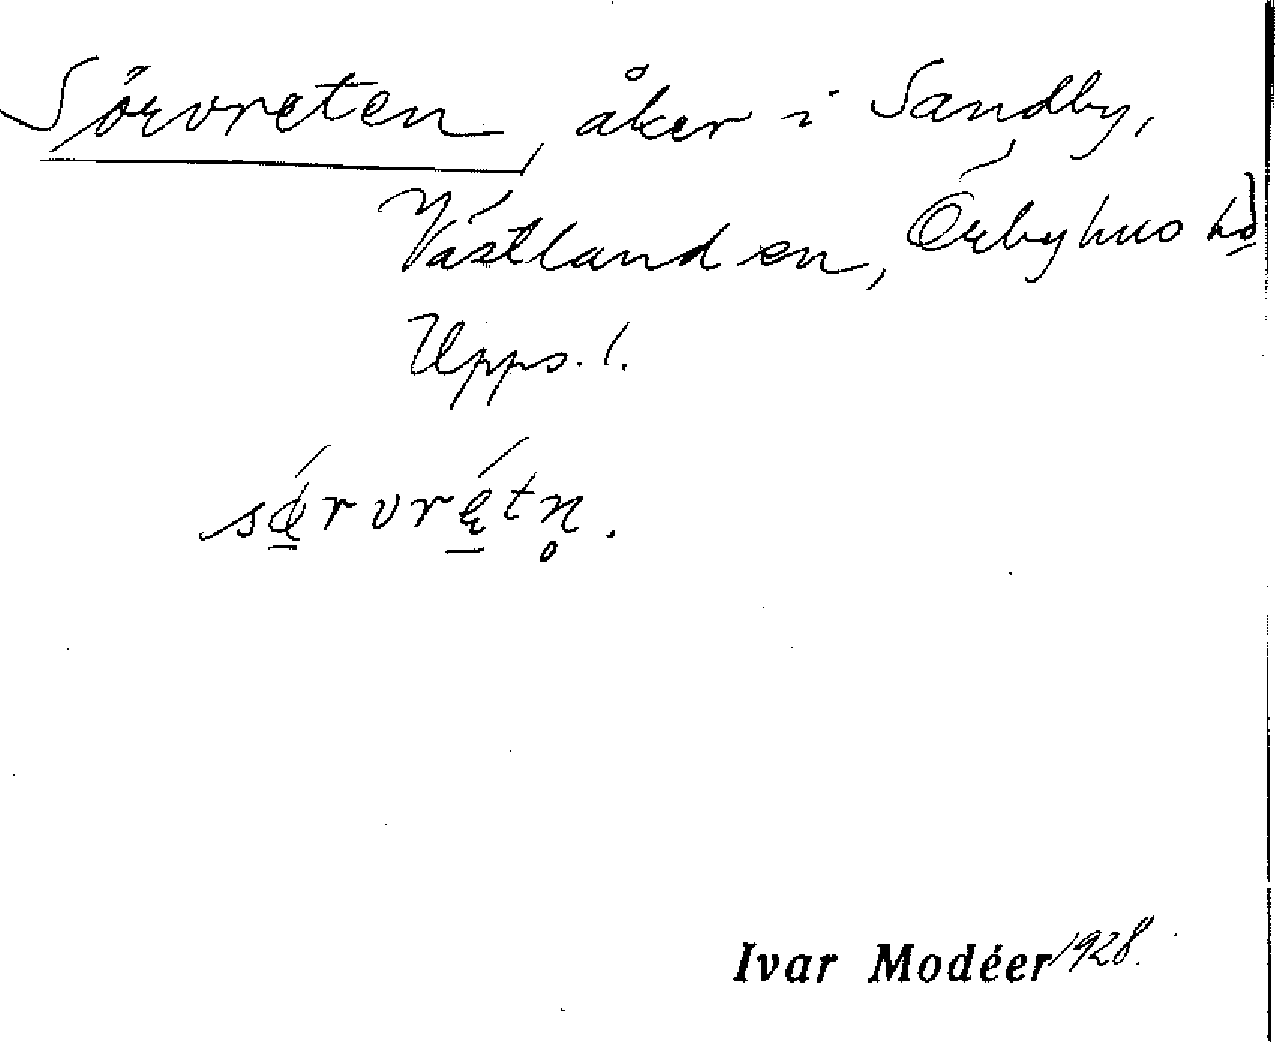 Sörvreten, åker i Sandby,
Västland sn, Örbyhus hd
Upps. l.
sǿrvrétn̥.
Ivar Modéer 1928.